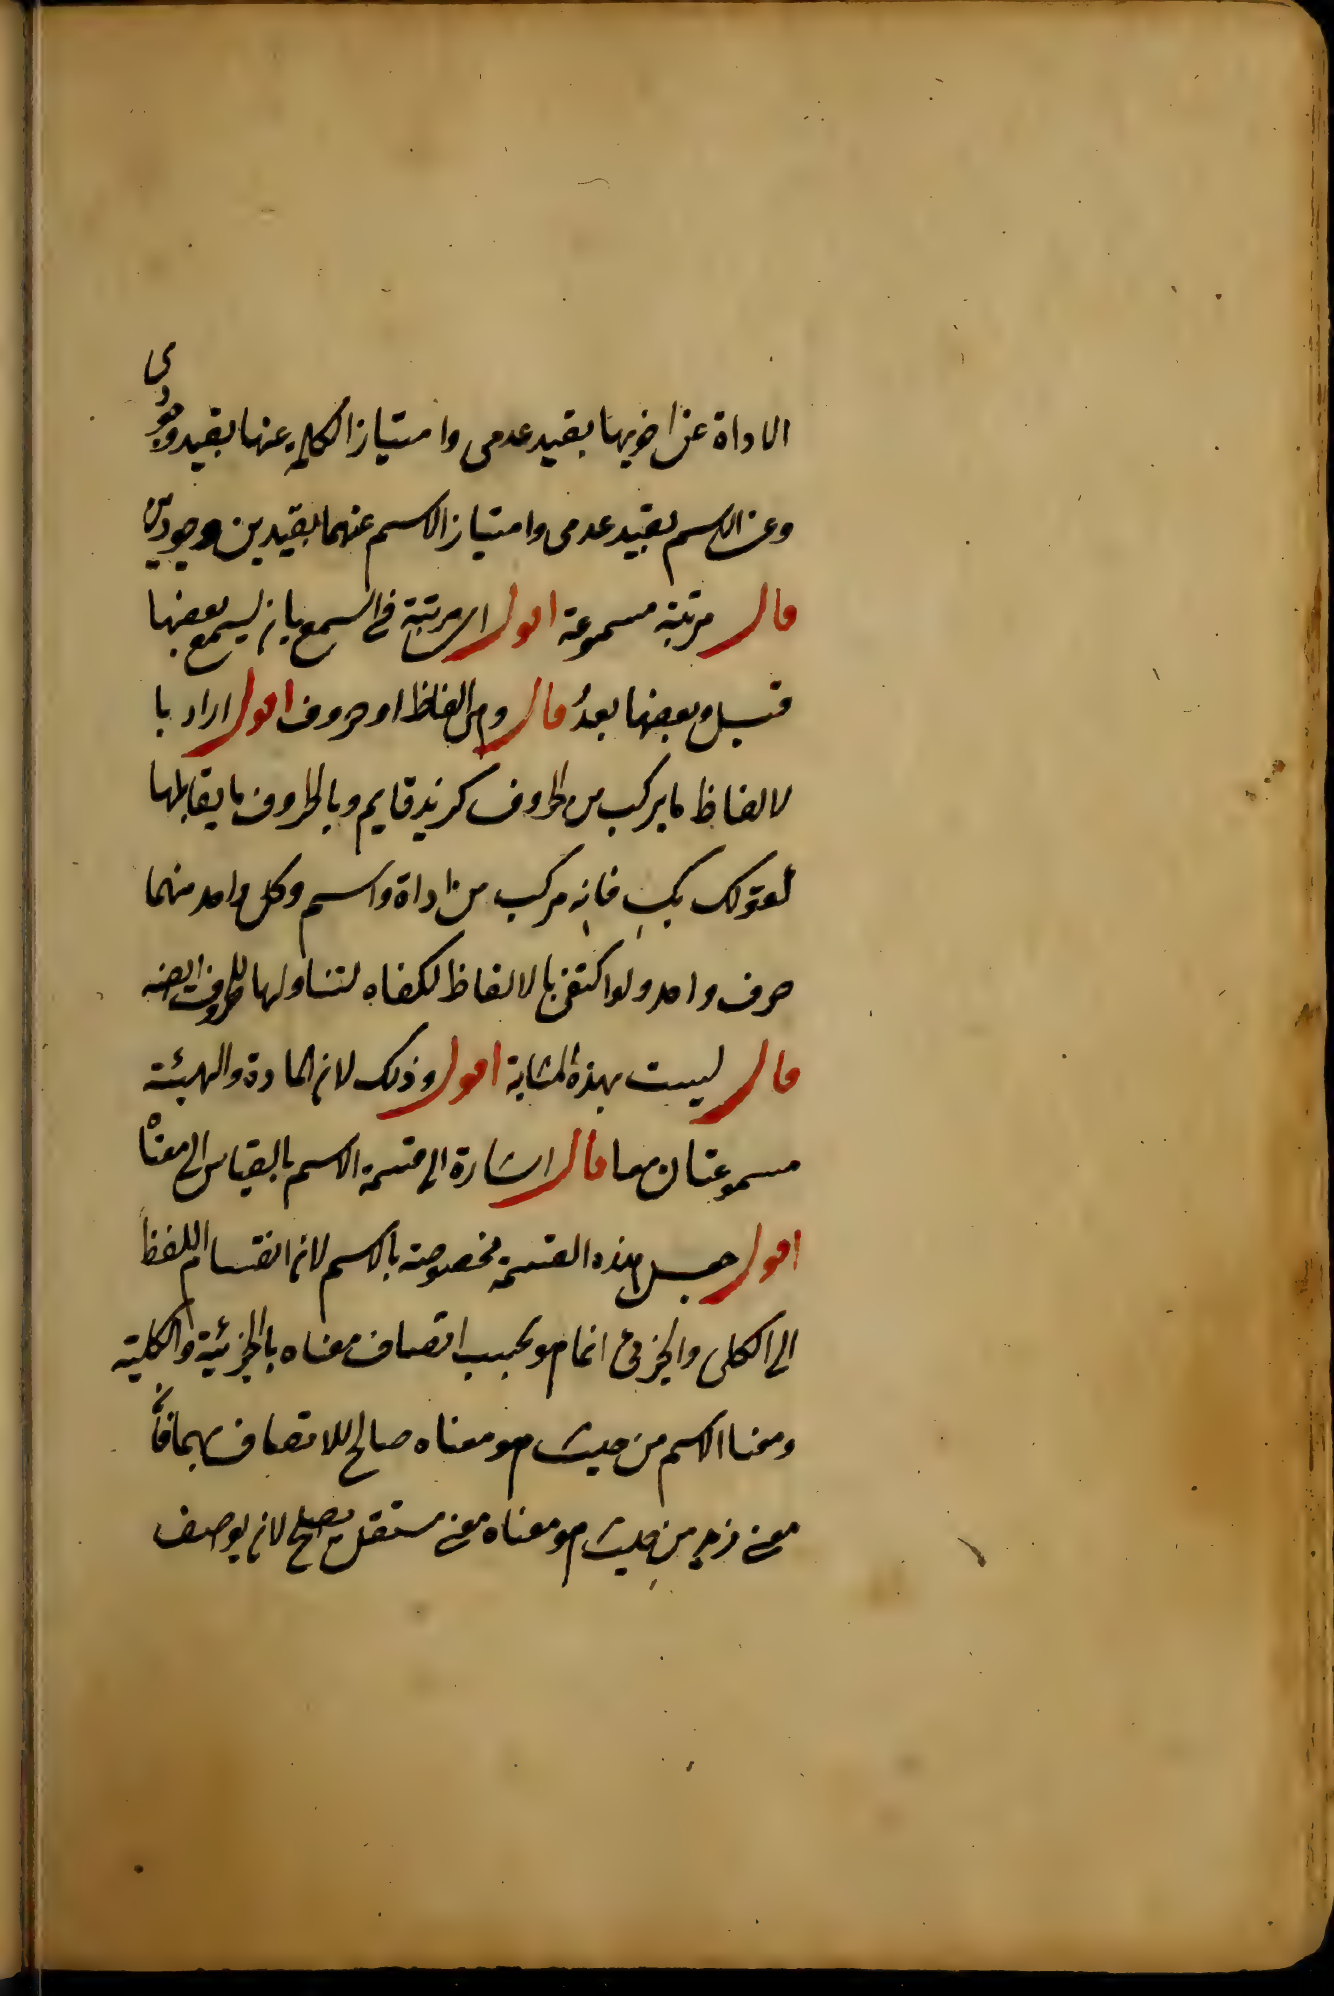 الاداة عن اخويها بقيد عدمى وامتياز الكلمة عنها بقيد وجودى
وعن الاسم بقيد عدمى وامتياز الاسم عنهما بقيدين وجوديين
قال مرتبة مسموعة اقول اى مرتبة فى السمع بان يسمع بعضها
قبل وبعضها بعدُ قال وهى الفاظ او حروف اقول اراد با
لالفاظ ما يركب من الحروف كزيد قايم وبالحروف ما يقابلها
كقولك بك فانه مركب من اداة واسم وكل واحد منهما
حرف واحد ولو اكتفى بالالفاظ لكفاه لتناولها للحروف ايضه
قال ليست بهذه المثابة اقول وذلك لان المادة والهيئة
مسموعتان معا قال اشارة الى قسمة الاسم بالقياس الى معناه
اقول جعل هذه القسمة مخصوصة بالاسم لان انقسام اللفظ
الى الكلى والجزئى انما هو بحسب اتصاف معناه بالجزئية والكلية
ومعنا الاسم من حيث هو معناه صالح للاتصاف بهما فان
معنى زيد من حيث هو معناه معنى مستقل يصلح لان يوصف